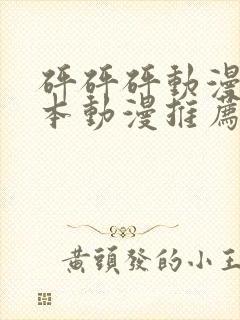 砰砰砰動漫
本動漫推薦
黃頭發的小王